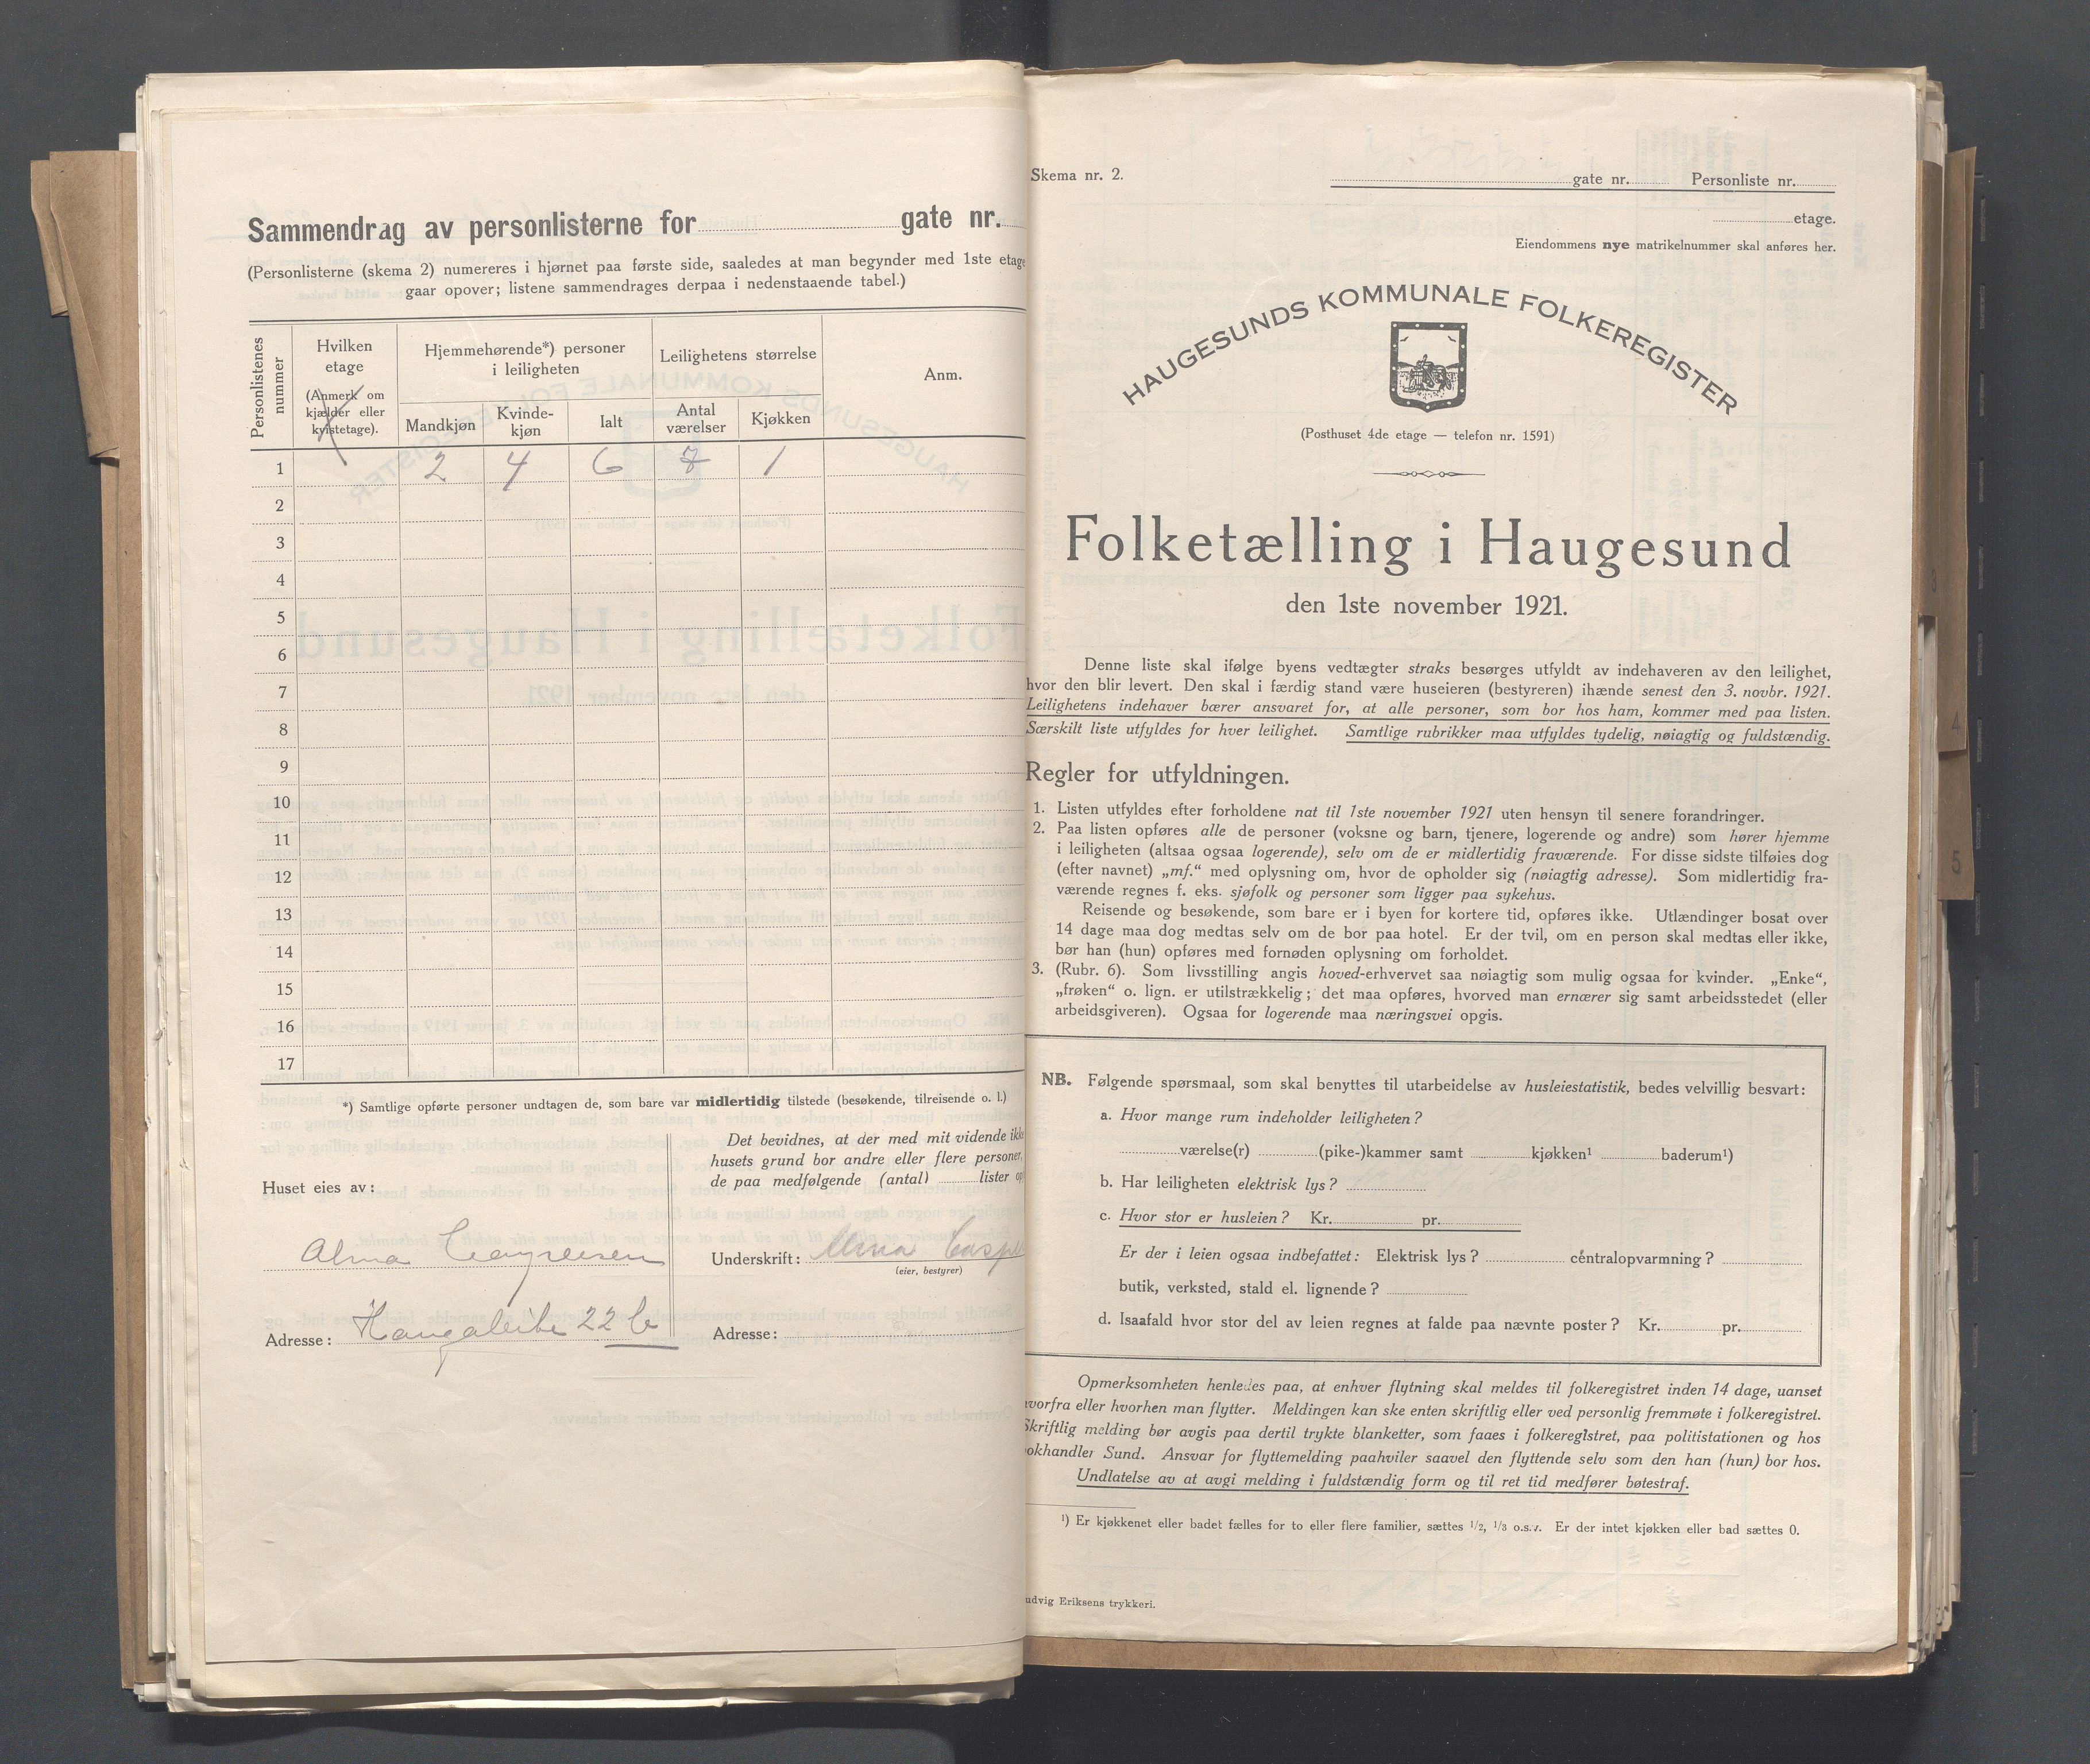 Sammendrag av personlisterne for gate nr.
(Personlisterne (skema 2) numereres i hjørnet paa første side, saaledes at man begynder med 1ste etage
gaar opover; listene sammendrages derpaa i nedenstaaende tabel.)
Personlistenes nummer
Hvilken etage
(Anmerk om kjælder eller kvistetage).
Hjemmehørende*) personer i leiligheten
Mandkjøn
Kvinde-
kjøn
Ialt
Leilighetens størrelse
Antal værelser
Kjøkken
Anm.
1 2 4 6 7 1
2
3
4
5
6
7
8
9
10
11
12
13
14
15
16
17
*) Samtlige opførte personer undtagen de, som bare var midlertidig tilstede (besøkende, tilreisende o. l.)
Det bevidnes, at der med mit vidende ikke
husets grund bor andre eller flere personer,
de paa medfølgende (antal) lister
Huset eies av:
Alma
Underskrift: Alma
(eier, bestyrer)
Adresse: 22 b
Adresse:
Skema nr. 2.
gate nr. Personliste nr.
etage.
Eiendommens nye matrikelnummer skal anføres her.
HAUGESUNDS KOMMUNALE FOLKEREGISTER
(Posthuset 4de etage — telefon nr. 1591)
Folketælling i Haugesund
den 1ste november 1921.
Denne liste skal ifølge byens vedtægter straks besørges utfyldt av indehaveren av den leilighet,
hvor den blir levert. Den skal i færdig stand være huseieren (bestyreren) ihænde senest den 3. novbr. 1921.
Leilighetens indehaver bærer ansvaret for, at alle personer, som bor hos ham, kommer med paa listen.
Særskilt liste utfyldes for hver leilighet. Samtlige rubrikker maa utfyldes tydelig, nøiagtig og fuldstændig.
Regler for utfyldningen.
1. Listen utfyldes efter forholdene nat til 1ste november 1921 uten hensyn til senere forandringer.
2. Paa listen opføres alle de personer (voksne og barn, tjenere, logerende og andre) som hører hjemme
i leiligheten (altsaa ogsaa logerende), selv om de er midlertidig fraværende. For disse sidste tilføies dog
(efter navnet) „mf.“ med oplysning om, hvor de opholder sig (nøiagtig adresse). Som midlertidig fra-
værende regnes f. eks. sjøfolk og personer som ligger paa sykehus.
Reisende og besøkende, som bare er i byen for kortere tid, opføres ikke. Utlændinger bosat over
14 dage maa dog medtas selv om de bor paa hotel. Er der tvil, om en person skal medtas eller ikke,
bør han (hun) opføres med fornøden oplysning om forholdet.
3. (Rubr. 6). Som livsstilling angis hoved-erhvervet saa nøiagtig som mulig ogsaa for kvinder. „Enke“,
„frøken“ o. lign. er utilstrækkelig; det maa opføres, hvorved man ernærer sig samt arbeidsstedet (eller
arbeidsgiveren). Ogsaa for logerende maa næringsvei opgis.
NB. Følgende spørsmaal, som skal benyttes til utarbeidelse av husleiestatistik, bedes velvillig besvart:
a. Hvor mange rum indeholder leiligheten?
værelse(r) (pike-)kammer samt kjøkken¹ baderum¹)
b. Har leiligheten elektrisk lys?
c. Hvor stor er husleien? Kr. pr.
Er der i leien ogsaa indbefattet: Elektrisk lys? centralopvarmning?
butik, verksted, stald el. lignende?
d. Isaafald hvor stor del av leien regnes at falde paa nævnte poster? Kr. pr.
Opmerksomheten henledes paa, at enhver flytning skal meldes til folkeregistret inden 14 dage, uanset
hvorfra eller hvorhen man flytter. Meldingen kan ske enten skriftlig eller ved personlig fremmøte i folkeregistret.
Skriftlig melding bør avgis paa dertil trykte blanketter, som faaes i folkeregistret, paa politistationen og hos
okhandler Sund. Ansvar for flyttemelding paahviler saavel den flyttende selv som den han (hun) bor hos.
Undlatelse av at avgi melding i fuldstændig form og til ret tid medfører bøtestraf.
¹) Er kjøkkenet eller badet fælles for to eller flere familier, sættes 1/2, 1/3 o.s.v. Er der intet kjøkken eller bad sættes 0.
udvig Eriksens trykkeri.
3
4
5